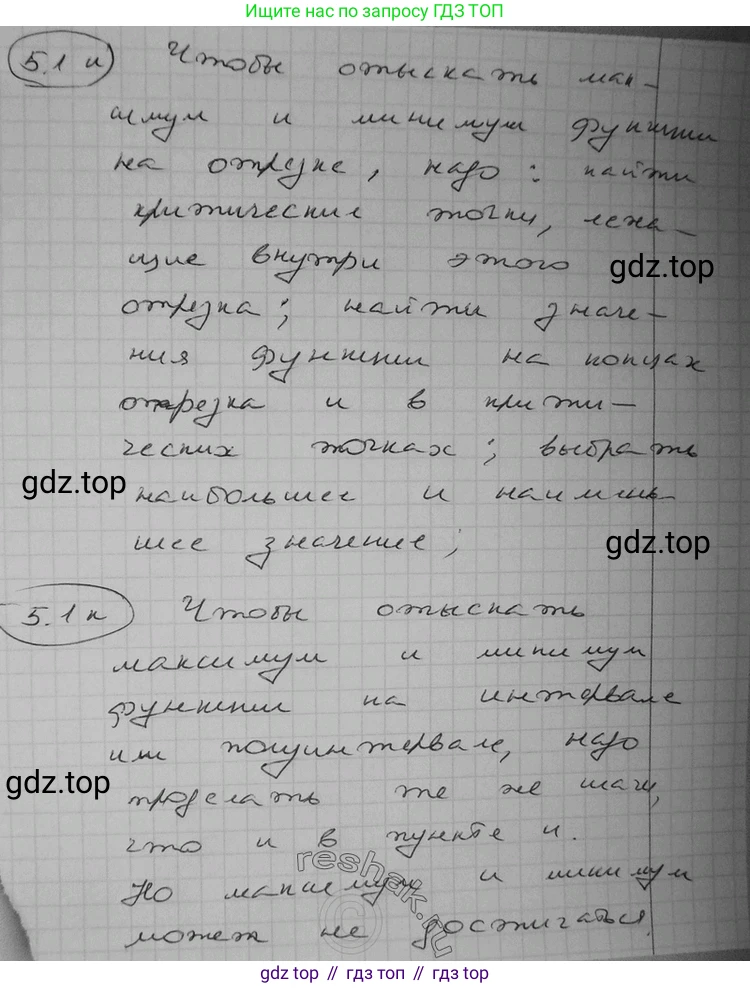 Ищите нас по запросу ГДЗ ТОП
5.1 и) Чтобы отыскать мак-
симум и минимум функции
на отрезке, надо: найти
критические точки, лежа-
щие внутри этого
gdz.top
отрезка; найти значе-
ния функции на концах
отрезка и в крити-
ческих точках; выбрать
gdz.top
наибольшее и наимень-
шее значение;
gdz.top
5.1 к) Чтобы отыскать
максимум и минимум
функции на интервале
или полуинтервале, надо
gdz.top
проделать те же шаги,
что и в пункте и.
reshak.ru
©
Но максимум и минимум
может не достигаться.
gdz.top // гдз топ // gdz top